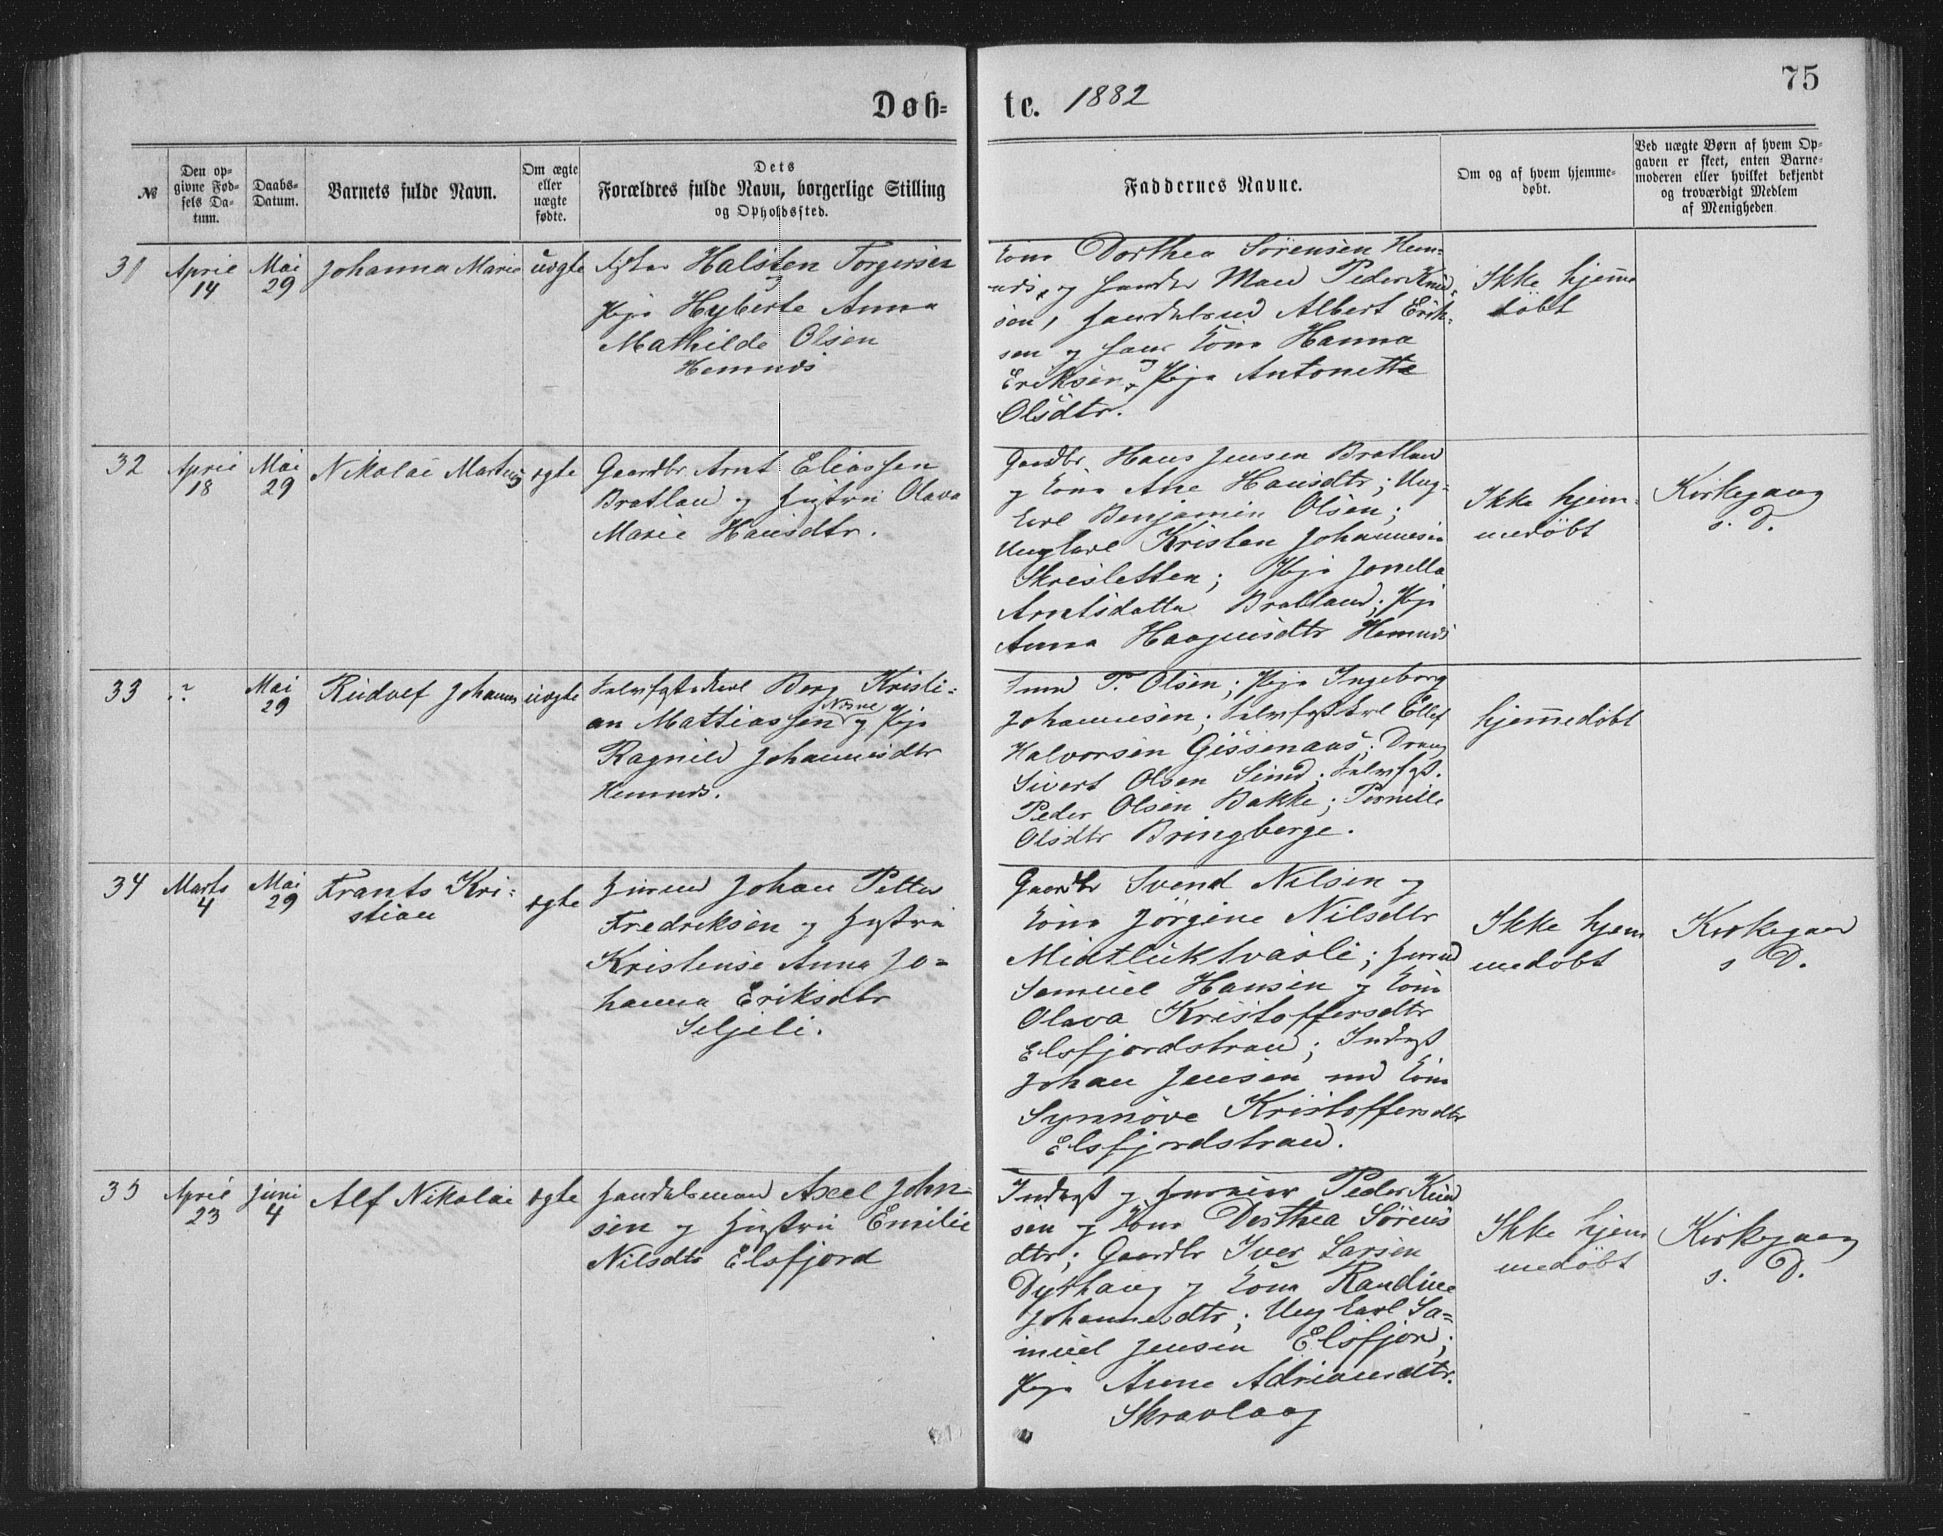 75
Døb-
te. 1882
№
Den op-
givne Fød-
sels Da-
tum.
Daabs-
Datum.
Barnets fulde Navn.
Om ægte
eller
uægte
fødte.
Dets
Forældres fulde Navn, borgerlige Stilling
og Opholdssted.
Faddernes Navne.
Om og af hvem hjemme-
døbt.
Ved uægte Børn af hvem Op-
gaven er skeet, enten Barne-
moderen eller hvilket bekjendt
og troværdigt Medlem
af Menigheden
31
April
14
Mai
29
Johanna Marie
uægte
Halsten Torgersen
Pige Hyberte Anna
Mathilde Olsen
Hemnæs
Kone Dorthea Sørensen Hem-
næs, og Mand Peder Knud-
sen, Albert Erik-
sen og Kone Hanna
Eriksen, Pige Antonette
Olsdtr.
Ikke hjemme
døbt
32
April
18
Mai
29
Nikolai Martens
ægte
Gaardbr Arnt Eliassen
Bratland og Hustru Olava
Marie Hansdtr.
Gaardbr. Hans Jensen Bratland
og Kone Ane Hansdtr; Ung-
karl Benjamin Olsen;
Ungkarl Kristen Johannesen
Skresletten; Pige Jonella
Arntsdatter Bratland; Pige
Anna Haagensdtr Hemnæs
Ikke hjem-
medøbt
Kirkegang
s. D.
33
?
Mai
29
Rudolf Johannes
uægte
Berg Kristi-
an Mathiassen Næsne og Pige
Ragnild Johannesdtr
Hemnæs.
P. Olsen; Pige Ingeborg
Johannesen; Ellef
Halvorsen Gissenaas; Dreng
Sivert Olsen Sund;
Peder Olsen Bakke; Pernille
Olsdtr Bringberge.
hjemmedøbt
34
Marts
4
Mai
29
Frants Kri-
stian
ægte
Johan Petter
Fredriksen og Hustru
Kristense Anna Jo-
hanna Eriksdtr
Seljeli.
Gaardbr Svend Nilsen og
Kone Jørgine Nilsdtr
Samuel Hansen og Kone
Olava Kristoffersdtr
Elsfjordstrand; Inderst
Johan Jensen med Kone
Synnøve Kristoffersdtr
Elsfjordstrand.
Ikke hjem
medøbt
Kirkegang
s D.
35
April
23
Juni
4
Alf Nikolai
ægte
Handelsmand Axel John-
sen og Hustru Emilie
Nilsdtr Elsfjord
Inderst og Peder Knud
sen og Kone Dorthea Sørens
dtr; Gaardbr Iver Larsen
Dythaug og Kone Randine
Johannesdtr; Ungkarl Sa-
muel Jensen Elsfjord;
Pige Anne Adriansdtr.
Skravlaag
Ikke hjem
medøbt
Kirkegang
s. D.